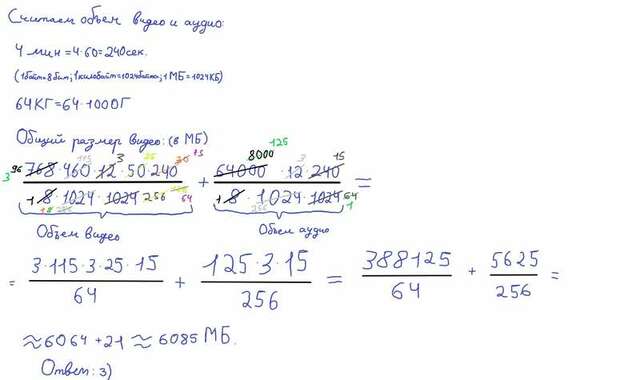 Считаем объем видео и аудио:
4 мин = 4·60 = 240 сек.
(1 байт = 8 бит; 1 килобайт = 1024 байта; 1 МБ = 1024 КБ)
64 КГ = 64·1000Г
Общий размер видео: (в МБ)
115 3 25 15 125 8000 15
3 96 768·460·12·50·240 30 + 64000·12·240 =
1 8·1024·1024 256 64 1 8·1024·1024 64
256 1
Объем видео Объем аудио
= 3·115·3·25·15 / 64 + 125·3·15 / 256 = 388125 / 64 + 5625 / 256 =
≈ 6064 + 21 ≈ 6085 МБ.
Ответ: 3)